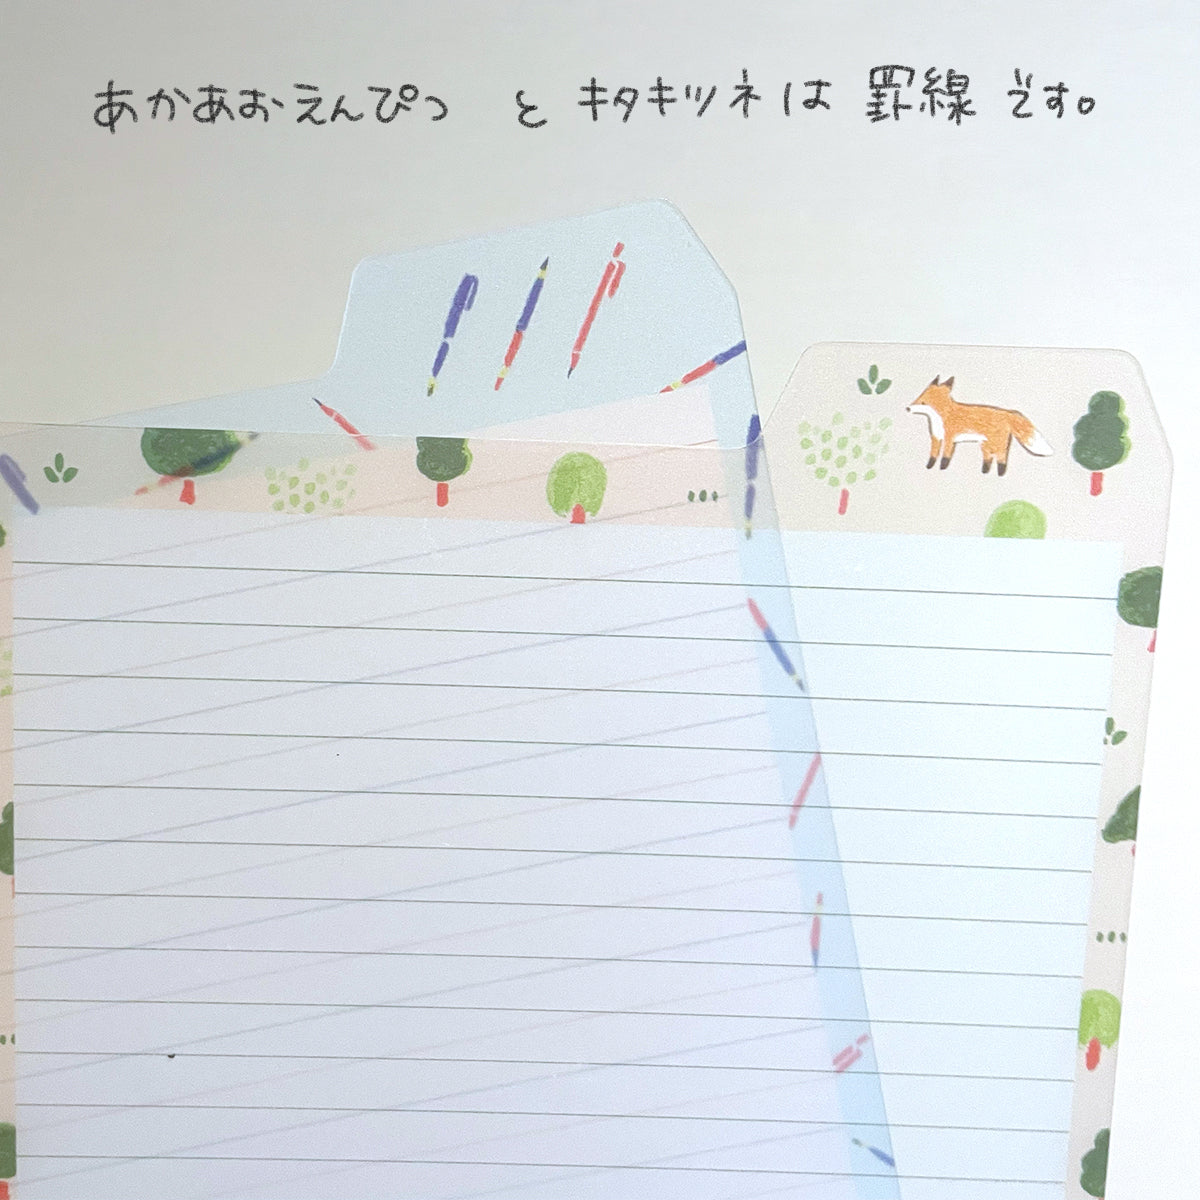 あかあおえんぴつ と キタキツネは 罫線 です。